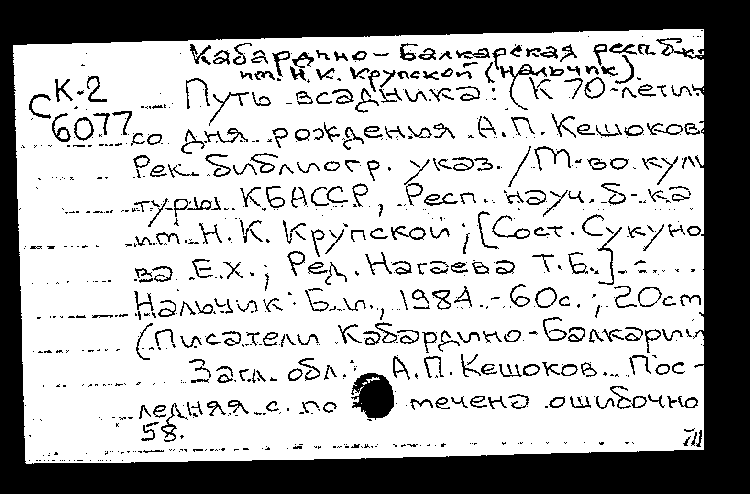 Кабардино-Балкарская респ. б-ка
им. Н.К. Крупской (Нальчик).
К-2
С 6077
Путь всадника: (К 70-летию
со дня рождения А.П. Кешокова
Рек. библиогр. указ. / М-во куль
туры КБАССР, Респ. науч. б-ка
им. Н.К. Крупской; [Сост. Сукуно
ва Е.Х.; Ред. Нагаева Т.Б.]. -
Нальчик: Б.и., 1984. - 60с.; 20см
(Писатели Кабардино-Балкарии
Загл. обл.: А.П. Кешоков. Пос-
ледняя с. по мечена ошибочно
58.